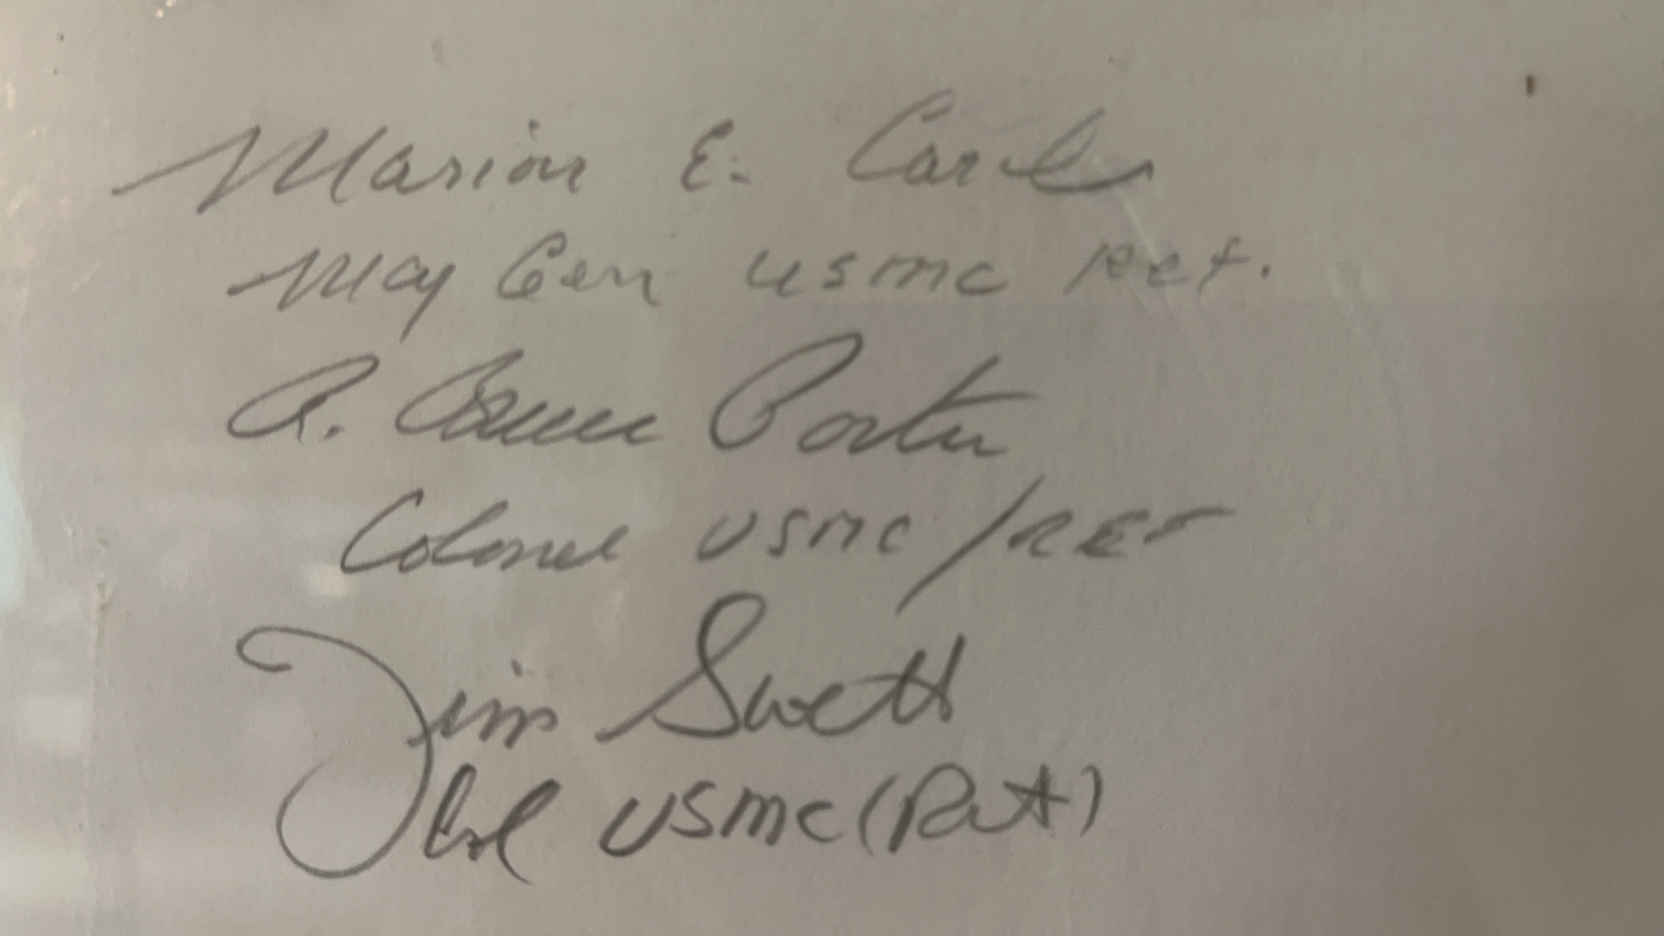 Marion E. Carl
Maj Gen USMC Ret.
R. Bruce Porter
Colonel USMC/RET
Jim Swett
Col USMC (Ret)